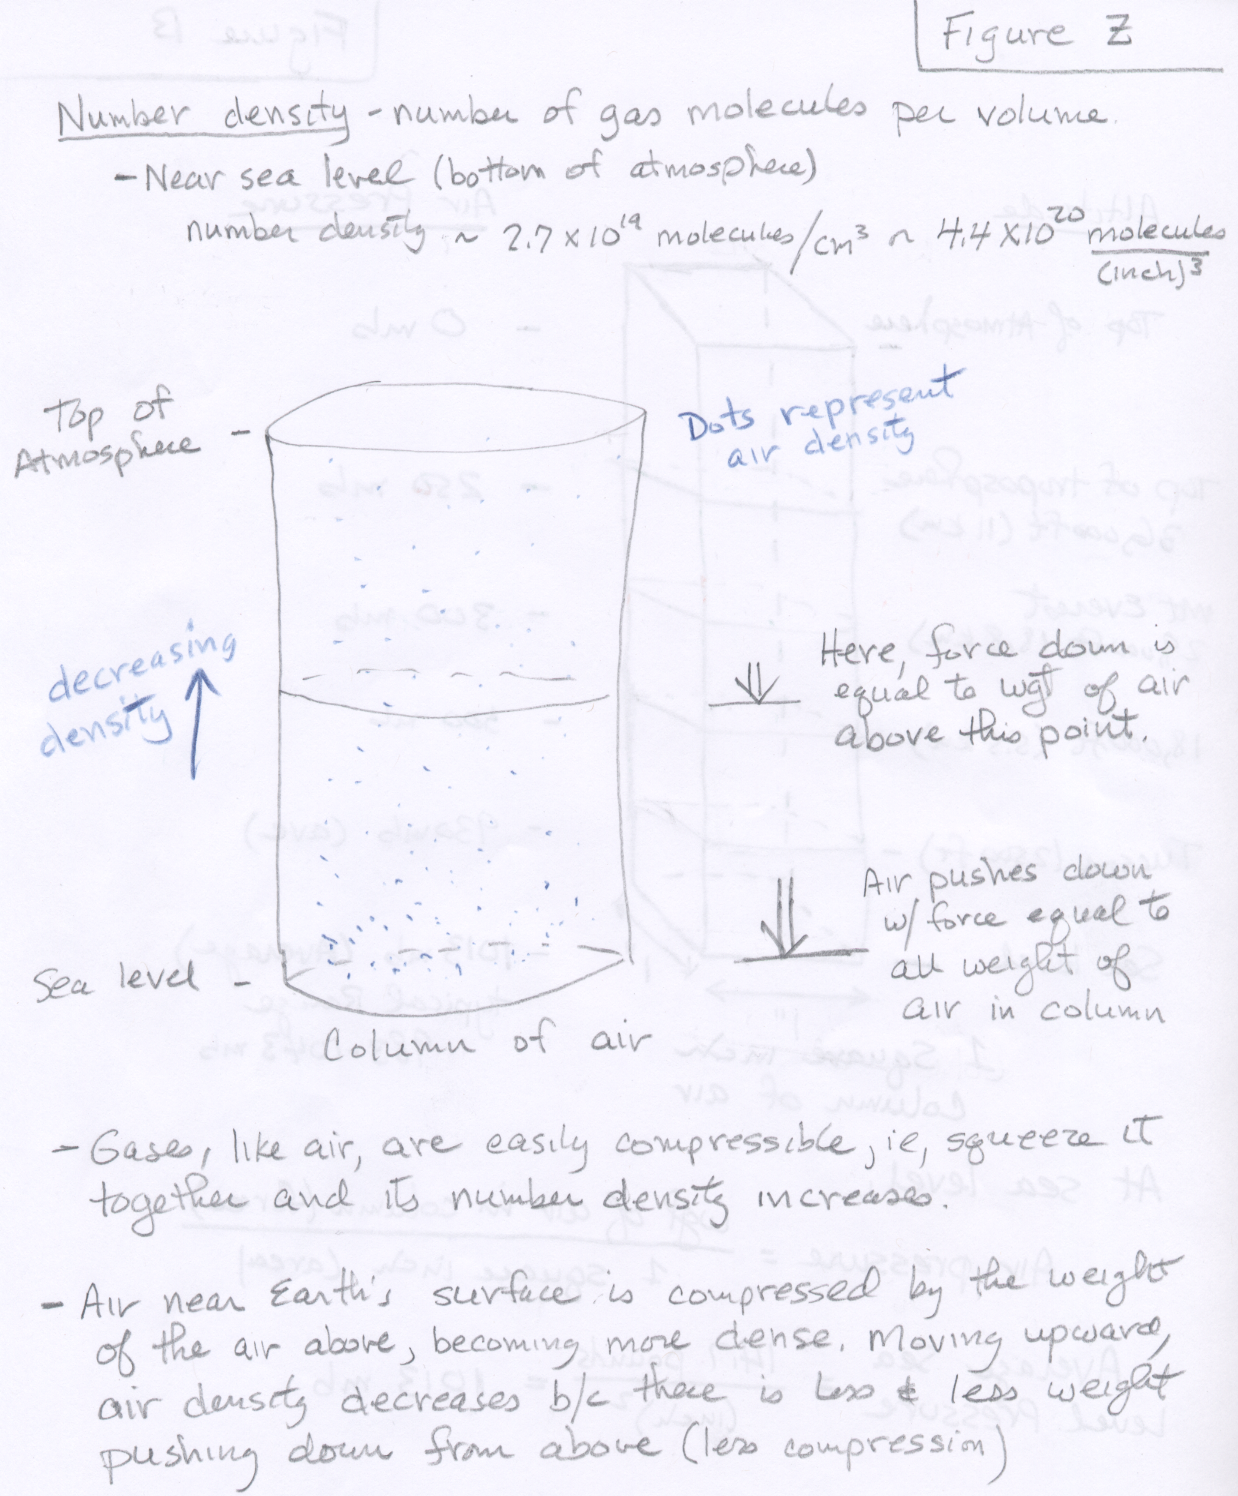 Figure Z
Number density - number of gas molecules per volume.
- Near sea level (bottom of atmosphere)
number density ~ 2.7 x 10^19 molecules/cm³ ~ 4.4 x 10^20 molecules/(inch)³
Top of
Atmosphere -
Dots represent
air density
decreasing
density
Here, force down is
equal to wgt of air
above this point.
Air pushes down
w/ force equal to
all weight of
air in column
Sea level -
Column of air
- Gases, like air, are easily compressible, ie, squeeze it
together and its number density increases.
- Air near Earth's surface is compressed by the weight
of the air above, becoming more dense. Moving upward,
air density decreases b/c there is less & less weight
pushing down from above (less compression)